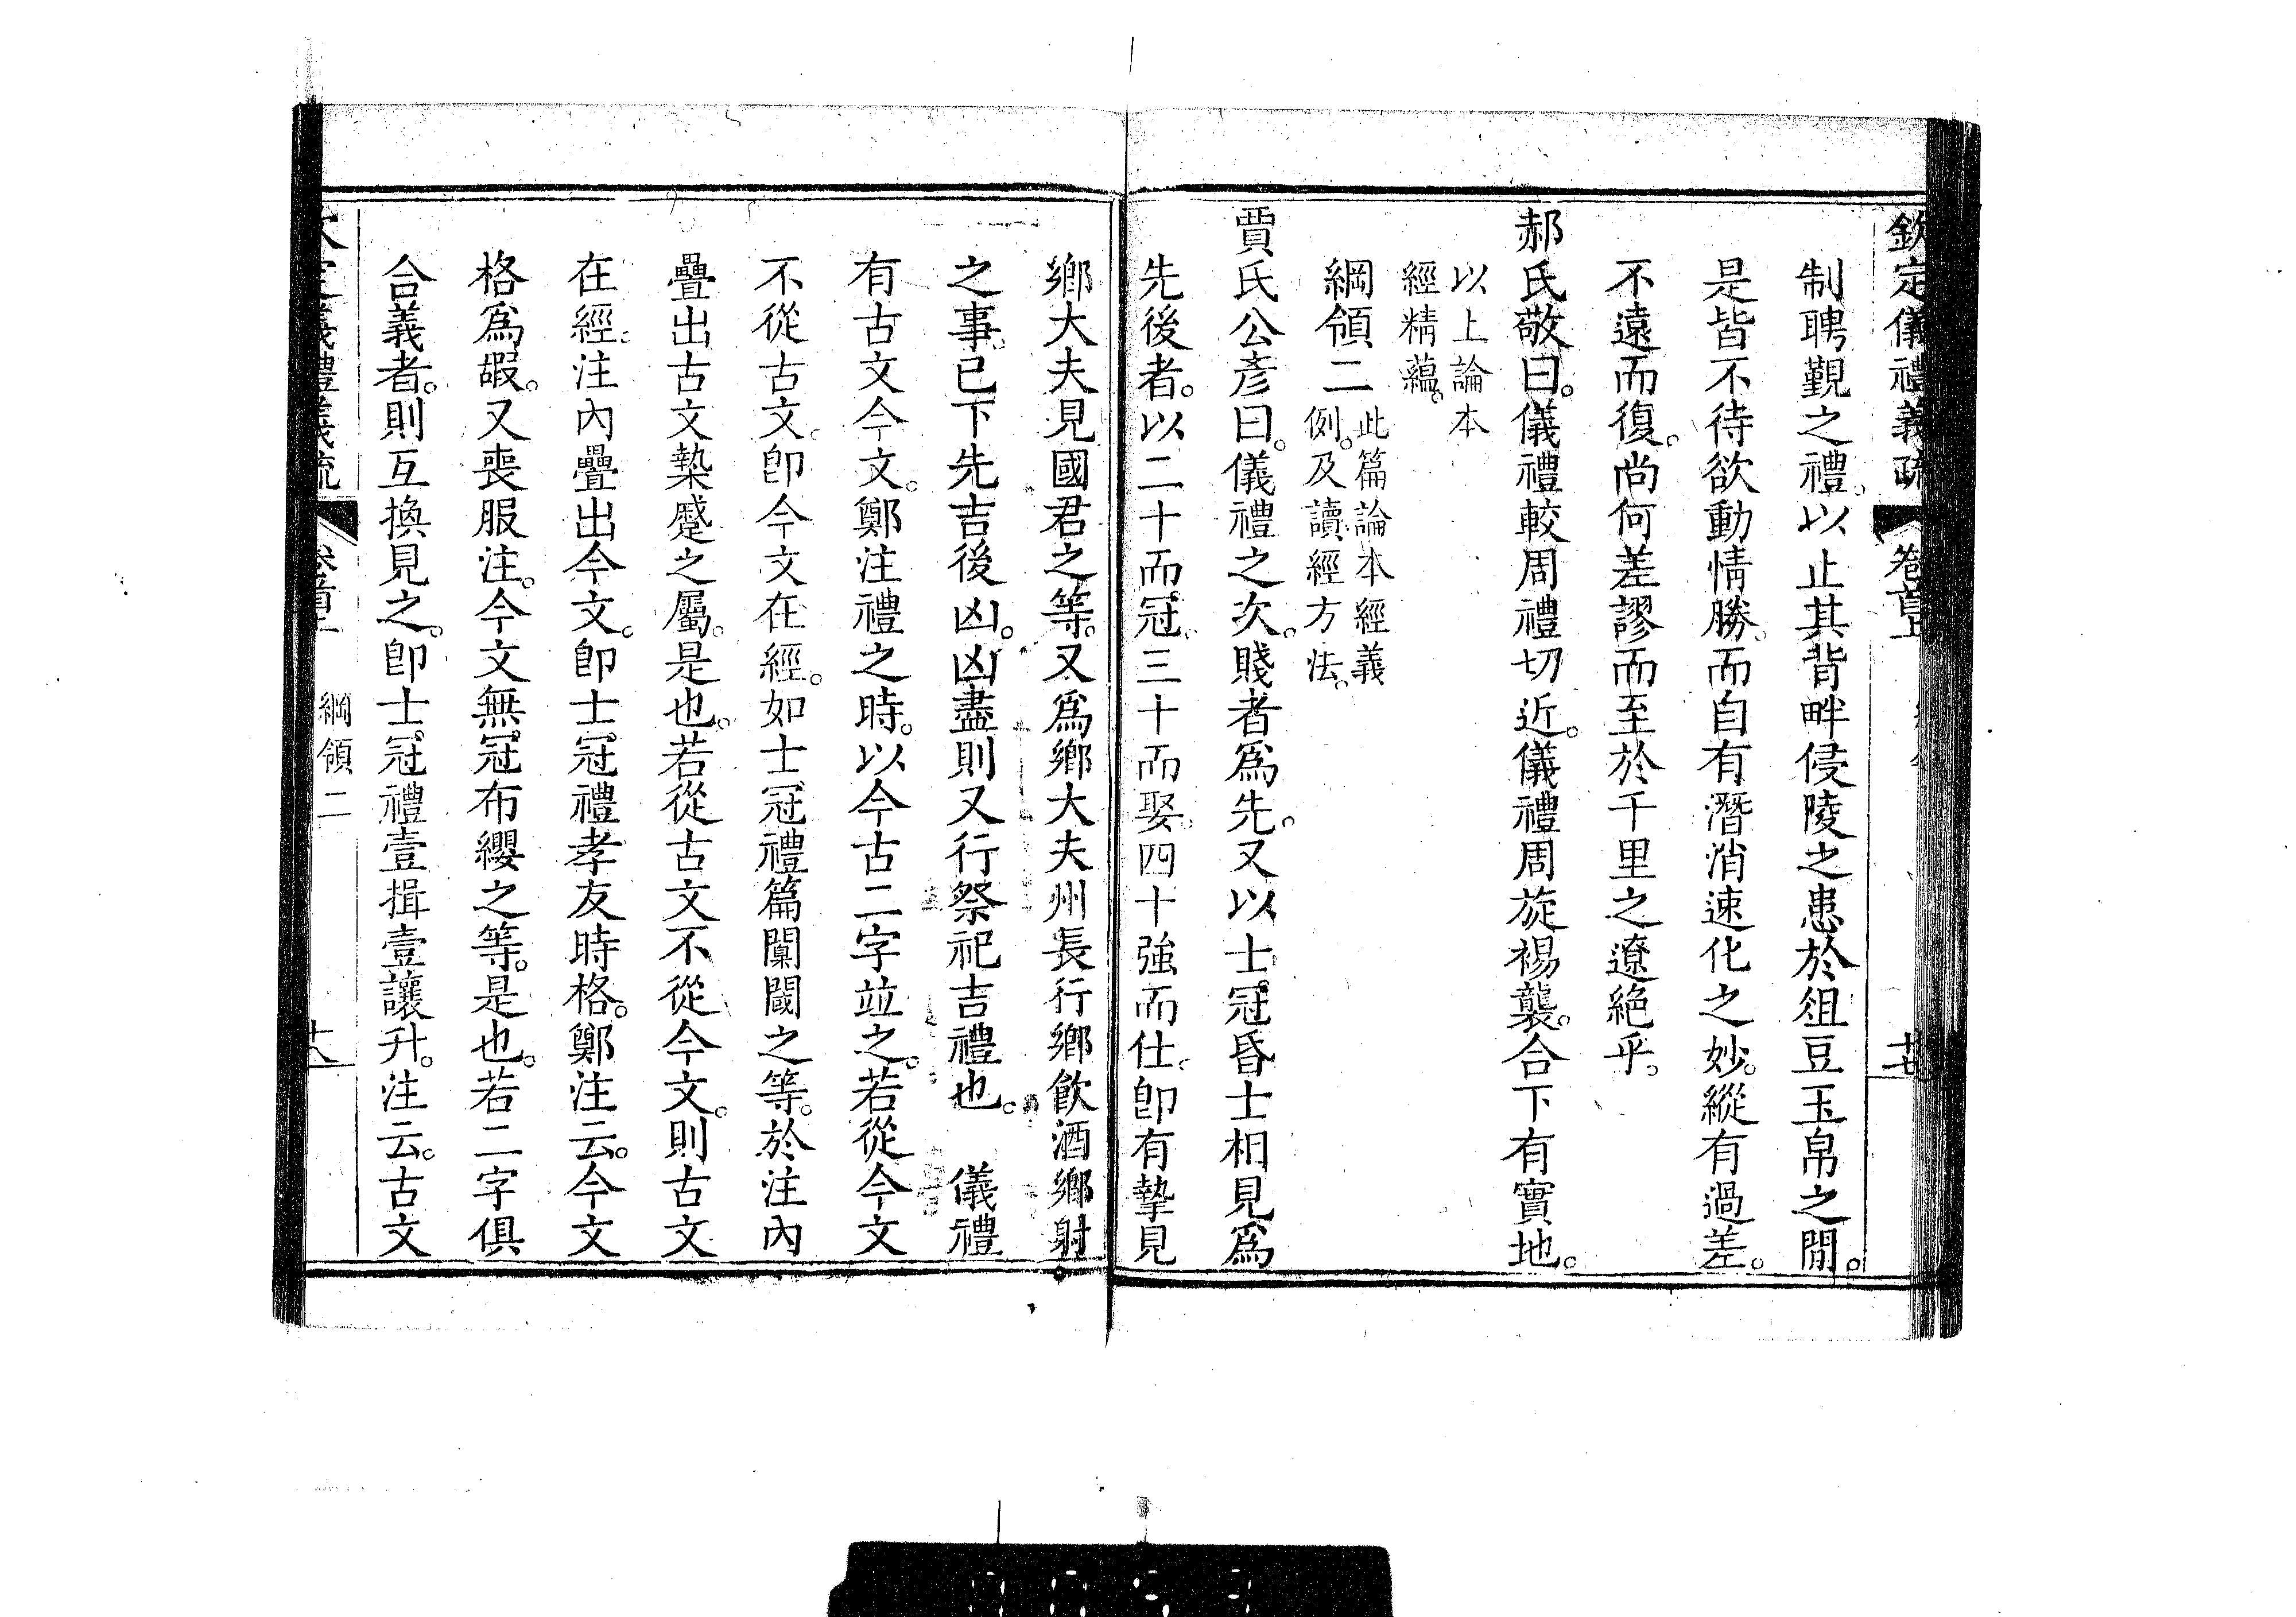 欽定儀禮義疏 卷首上
制聘覲之禮。以止其背畔侵陵之患於俎豆玉帛之閒。
是皆不待欲動情勝。而自有潛消速化之妙。縱有過差。
不遠而復。尚何差謬而至於千里之遼絕乎。
郝氏敬曰。儀禮較周禮切近。儀禮周旋裼襲。合下有實地。
以上論本
經精蘊。
綱領二 此篇論本經義
例。及讀經方法。
賈氏公彥曰。儀禮之次。賤者爲先。又以士冠昏士相見爲
先後者。以二十而冠。三十而娶。四十強而仕。卽有摯見
鄉大夫見國君之等。又爲鄉大夫州長行鄉飲酒鄉射。
之事。已下先吉後凶。凶盡則又行祭祀吉禮也。 儀禮
有古文今文。鄭注禮之時。以今古二字竝之。若從今文
不從古文。卽今文在經。如士冠禮篇闑閾之等。於注內
疊出古文槷蹙之屬。是也。若從古文不從今文。則古文
在經。注內疊出今文。卽士冠禮孝友時格。鄭注云。今文
格爲嘏。又喪服注。今文無冠布纓之等。是也。若二字俱
合義者。則互換見之。卽士冠禮壹揖壹讓升。注云。古文
儀禮義疏 卷首上 綱領二